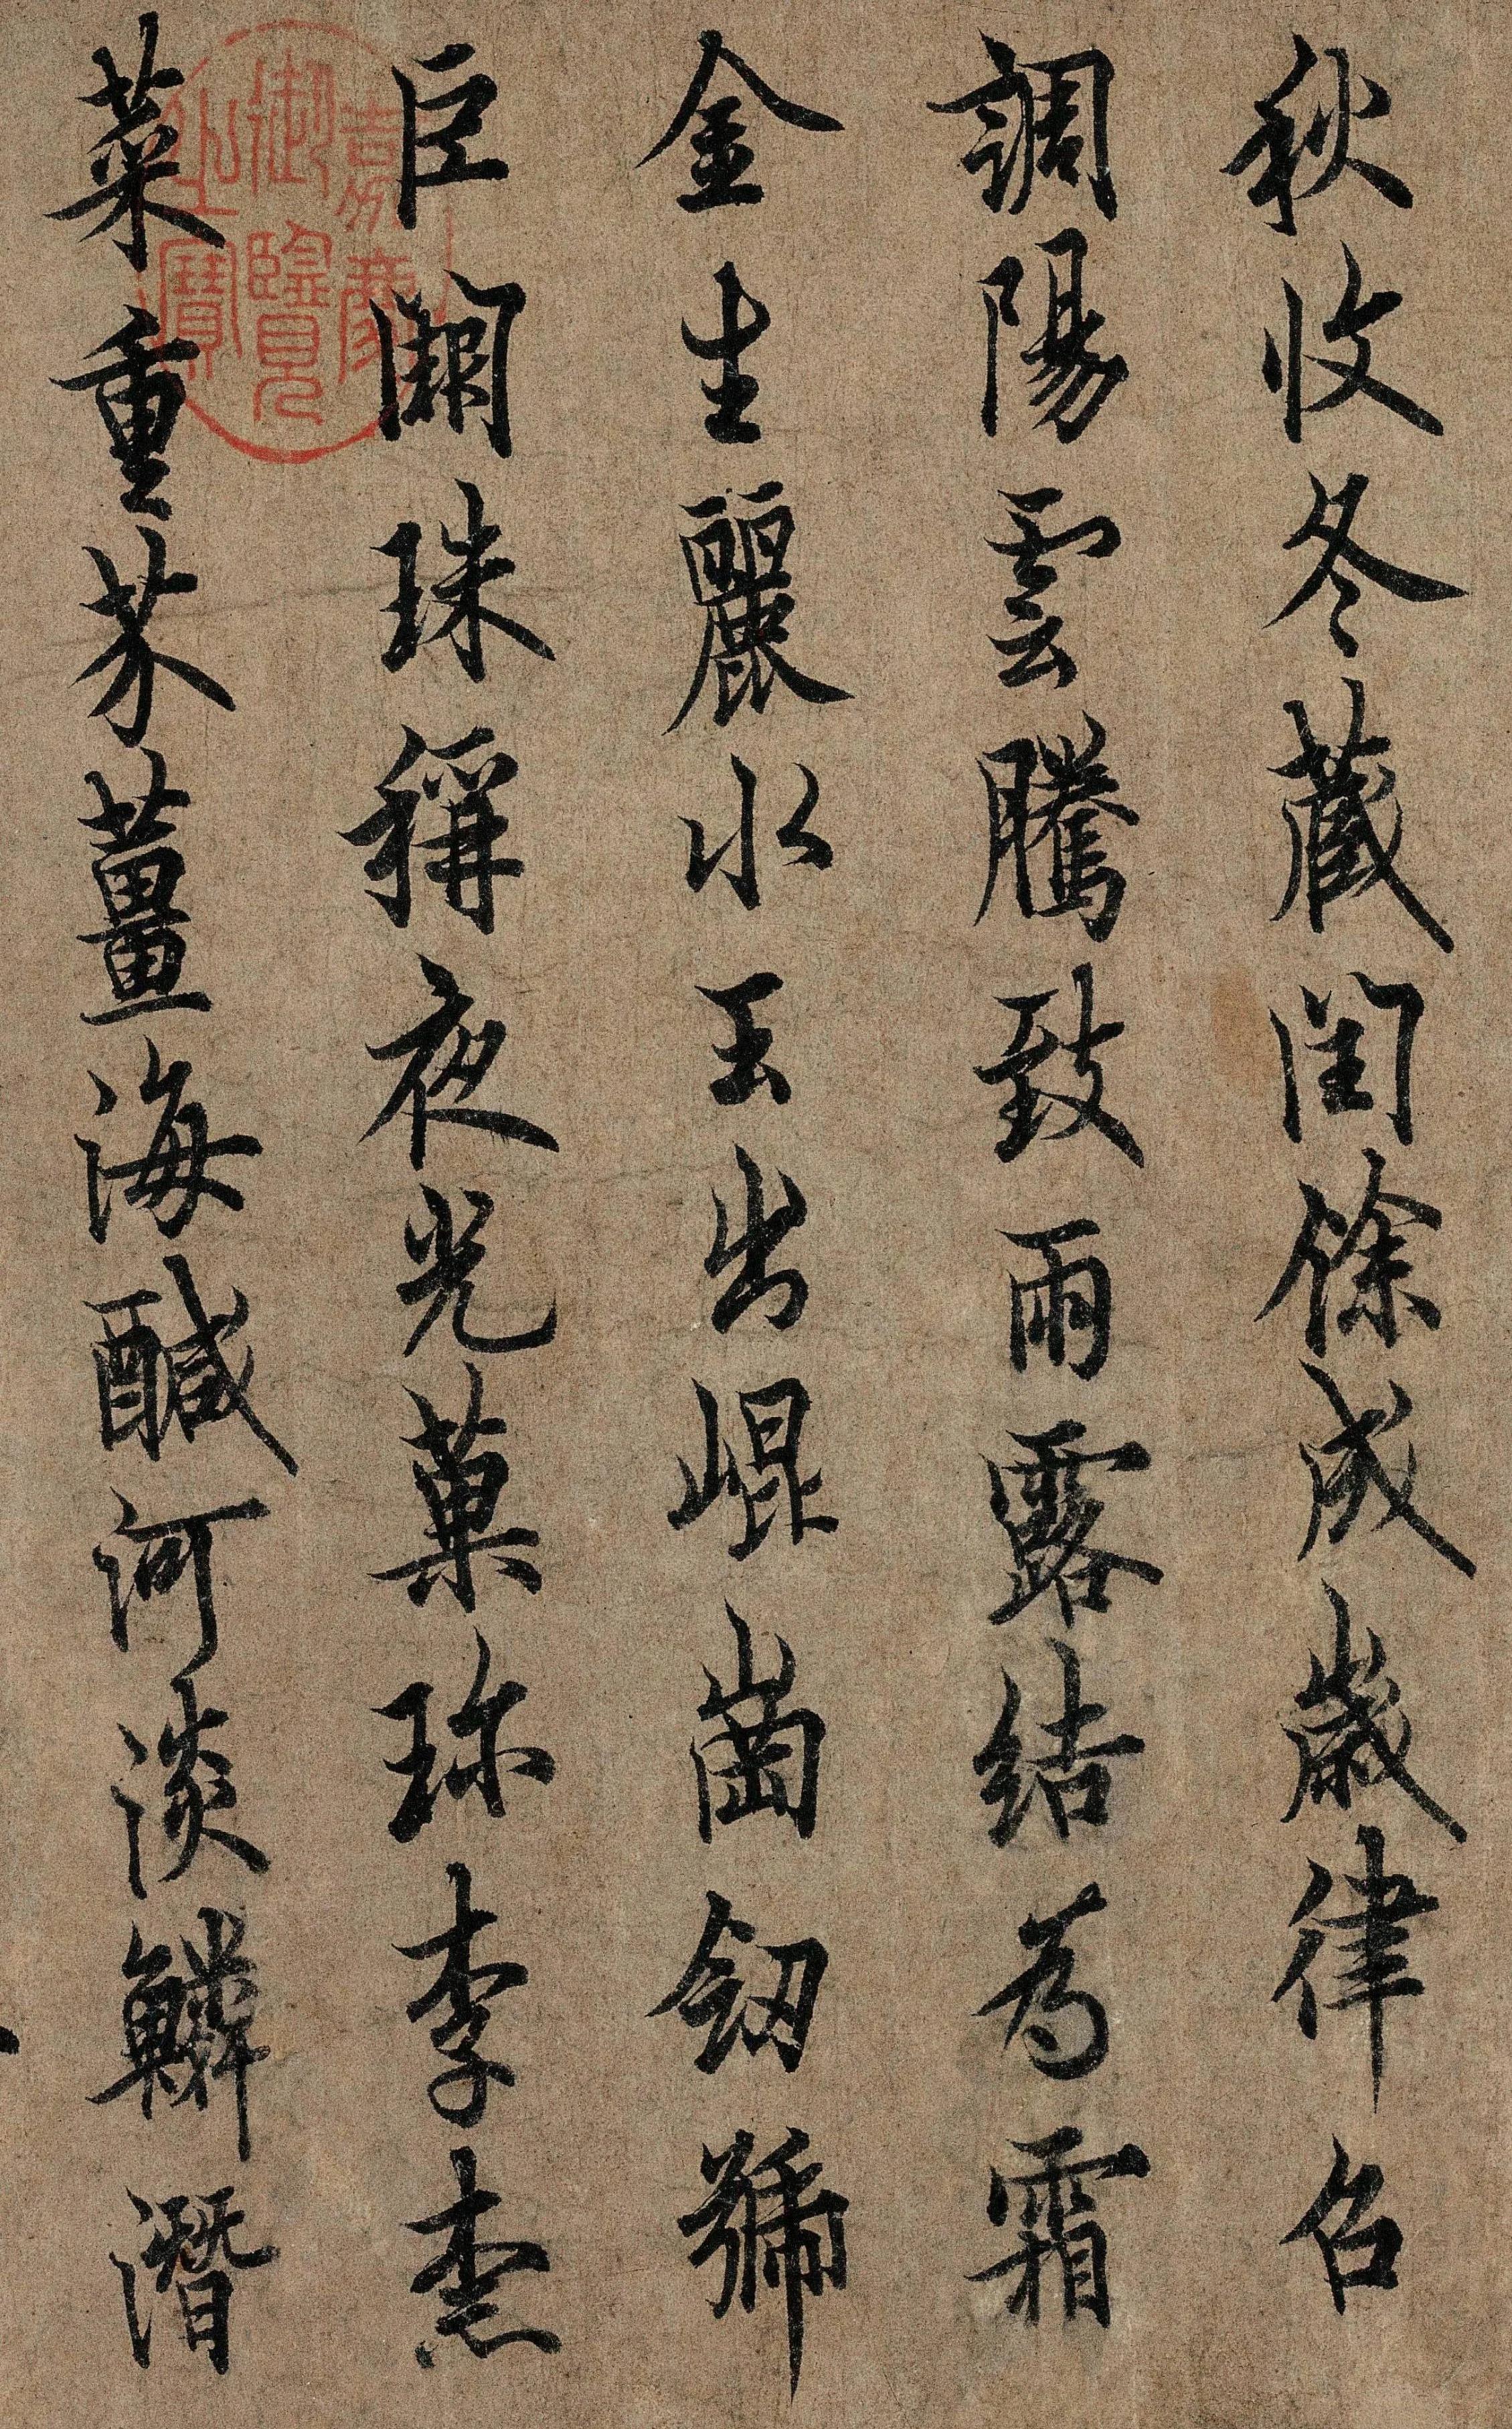 秋收冬藏閏餘成歲律召
調陽雲騰致雨露結為霜
金生麗水玉出崐崗釼號
巨闕珠稱夜光菓珎李柰
菜重芥薑海醎河淡鱗潛
嘉慶
御覽
之寶